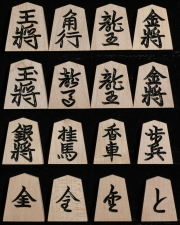 王將 角行 龍王 金將
玉將 龍馬 龍王 金將
銀將 桂馬 香車 歩兵
全 と